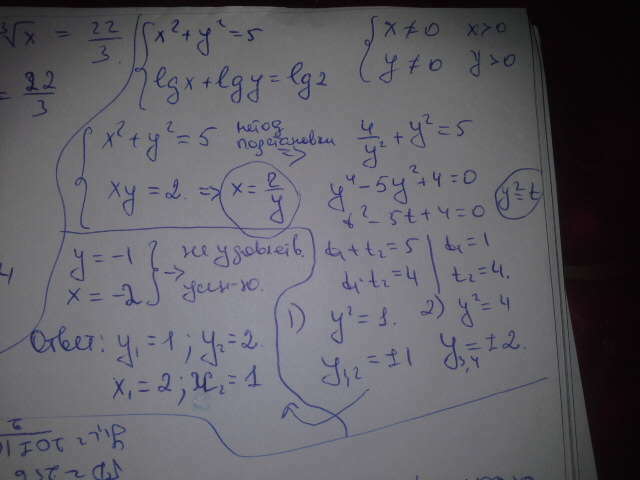 ∛x = 22/3
= 22/3
{ x² + y² = 5
lgx + lgy = lg2
{ x ≠ 0 x > 0
y ≠ 0 y > 0
{ x² + y² = 5 метод подстановки ⇒
xy = 2. ⇒ x = 2/y
4/y² + y² = 5
y⁴ - 5y² + 4 = 0
y² = t
t² - 5t + 4 = 0
t₁ + t₂ = 5 | t₁ = 1
t₁ · t₂ = 4 | t₂ = 4.
1) y² = 1. 2) y² = 4
y₁,₂ = ±1 y₃,₄ = ±2.
y = -1
x = -2 } → не удовлетв.
усл-ю.
Ответ: y₁ = 1 ; y₂ = 2.
x₁ = 2 ; x₂ = 1